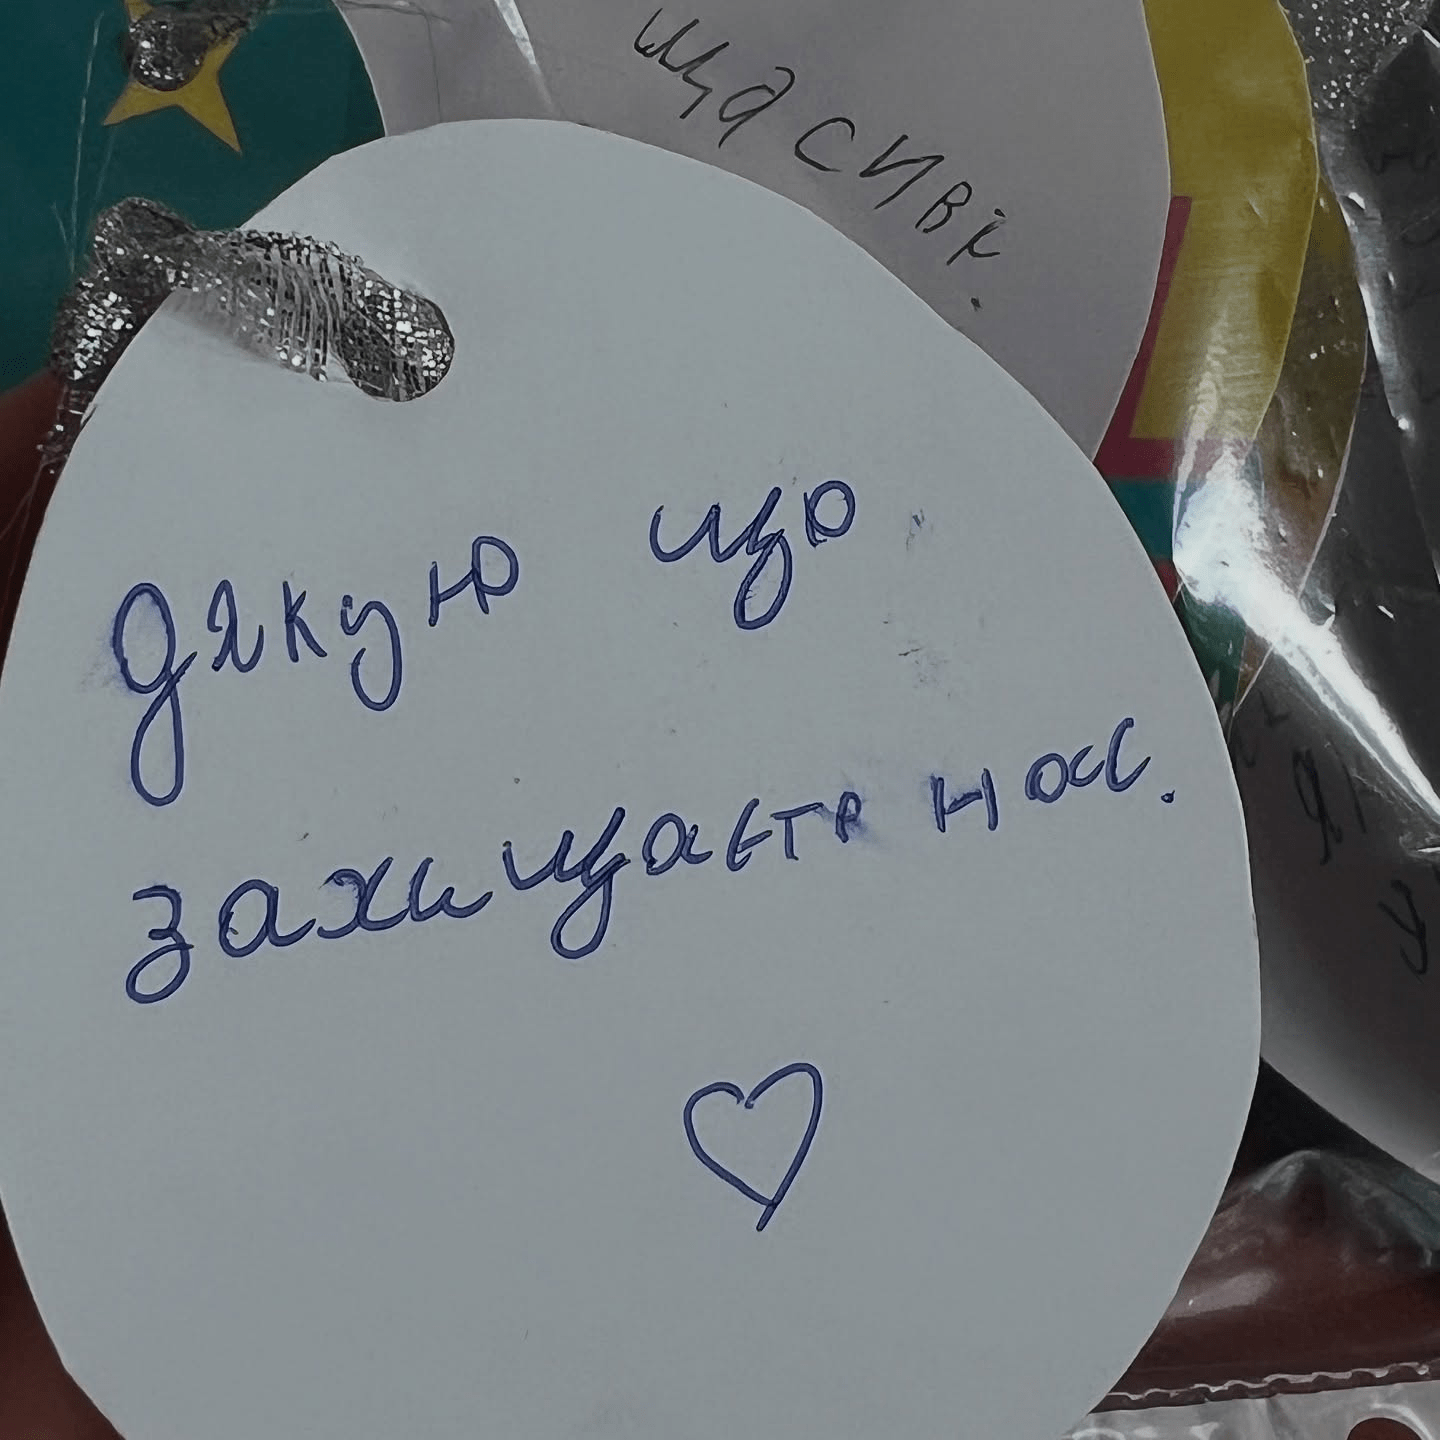 щасиві.
дякую що
захищаєте нас.